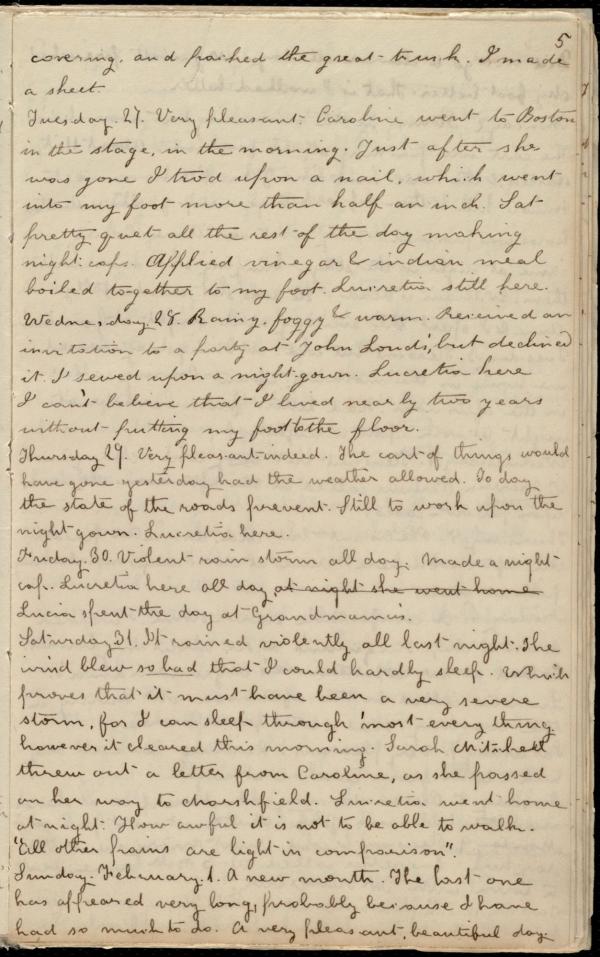 5
covering, and packed the great trunk. I made
a sheet.
Tuesday. 27. Very pleasant. Caroline went to Boston
in the stage, in the morning. Just after she
was gone I trod upon a nail, which went
into my foot more than half an inch. Sat
pretty quiet all the rest of the day making
night caps. Applied vinegar & indian meal
boiled together to my foot. Lucretia still here.
Wednesday. 28. Rainy, foggy & warm. Received an
invitation to a party at John Louds', but declined
it. I sewed upon a night-gown. Lucretia here
I can't believe that I lived nearly two years
without putting my foot to the floor.
Thursday 29. Very pleasant indeed. The cart of things would
have gone yesterday had the weather allowed. To day
the state of the roads prevent. Still to work upon the
night gown. Lucretia here.
Friday. 30. Violent rain storm all day. Made a night
cap. Lucretia here all day at night she went home
Lucia spent the day at Grandmama's.
Saturday 31. It rained violently all last night. The
wind blew so bad that I could hardly sleep. Which
proves that it must have been a very severe
storm, for I can sleep through 'most every thing
however it cleared this morning. Sarah Mitchell
threw out a letter from Caroline, as she passed
on her way to Marshfield. Lucretia went home
at night. How awful it is not to be able to walk.
"All other pains are light in comparison".
Sunday. February. 1. A new month. The last one
has appeared very long, probably because I have
had so much to do. A very pleasant, beautiful day.